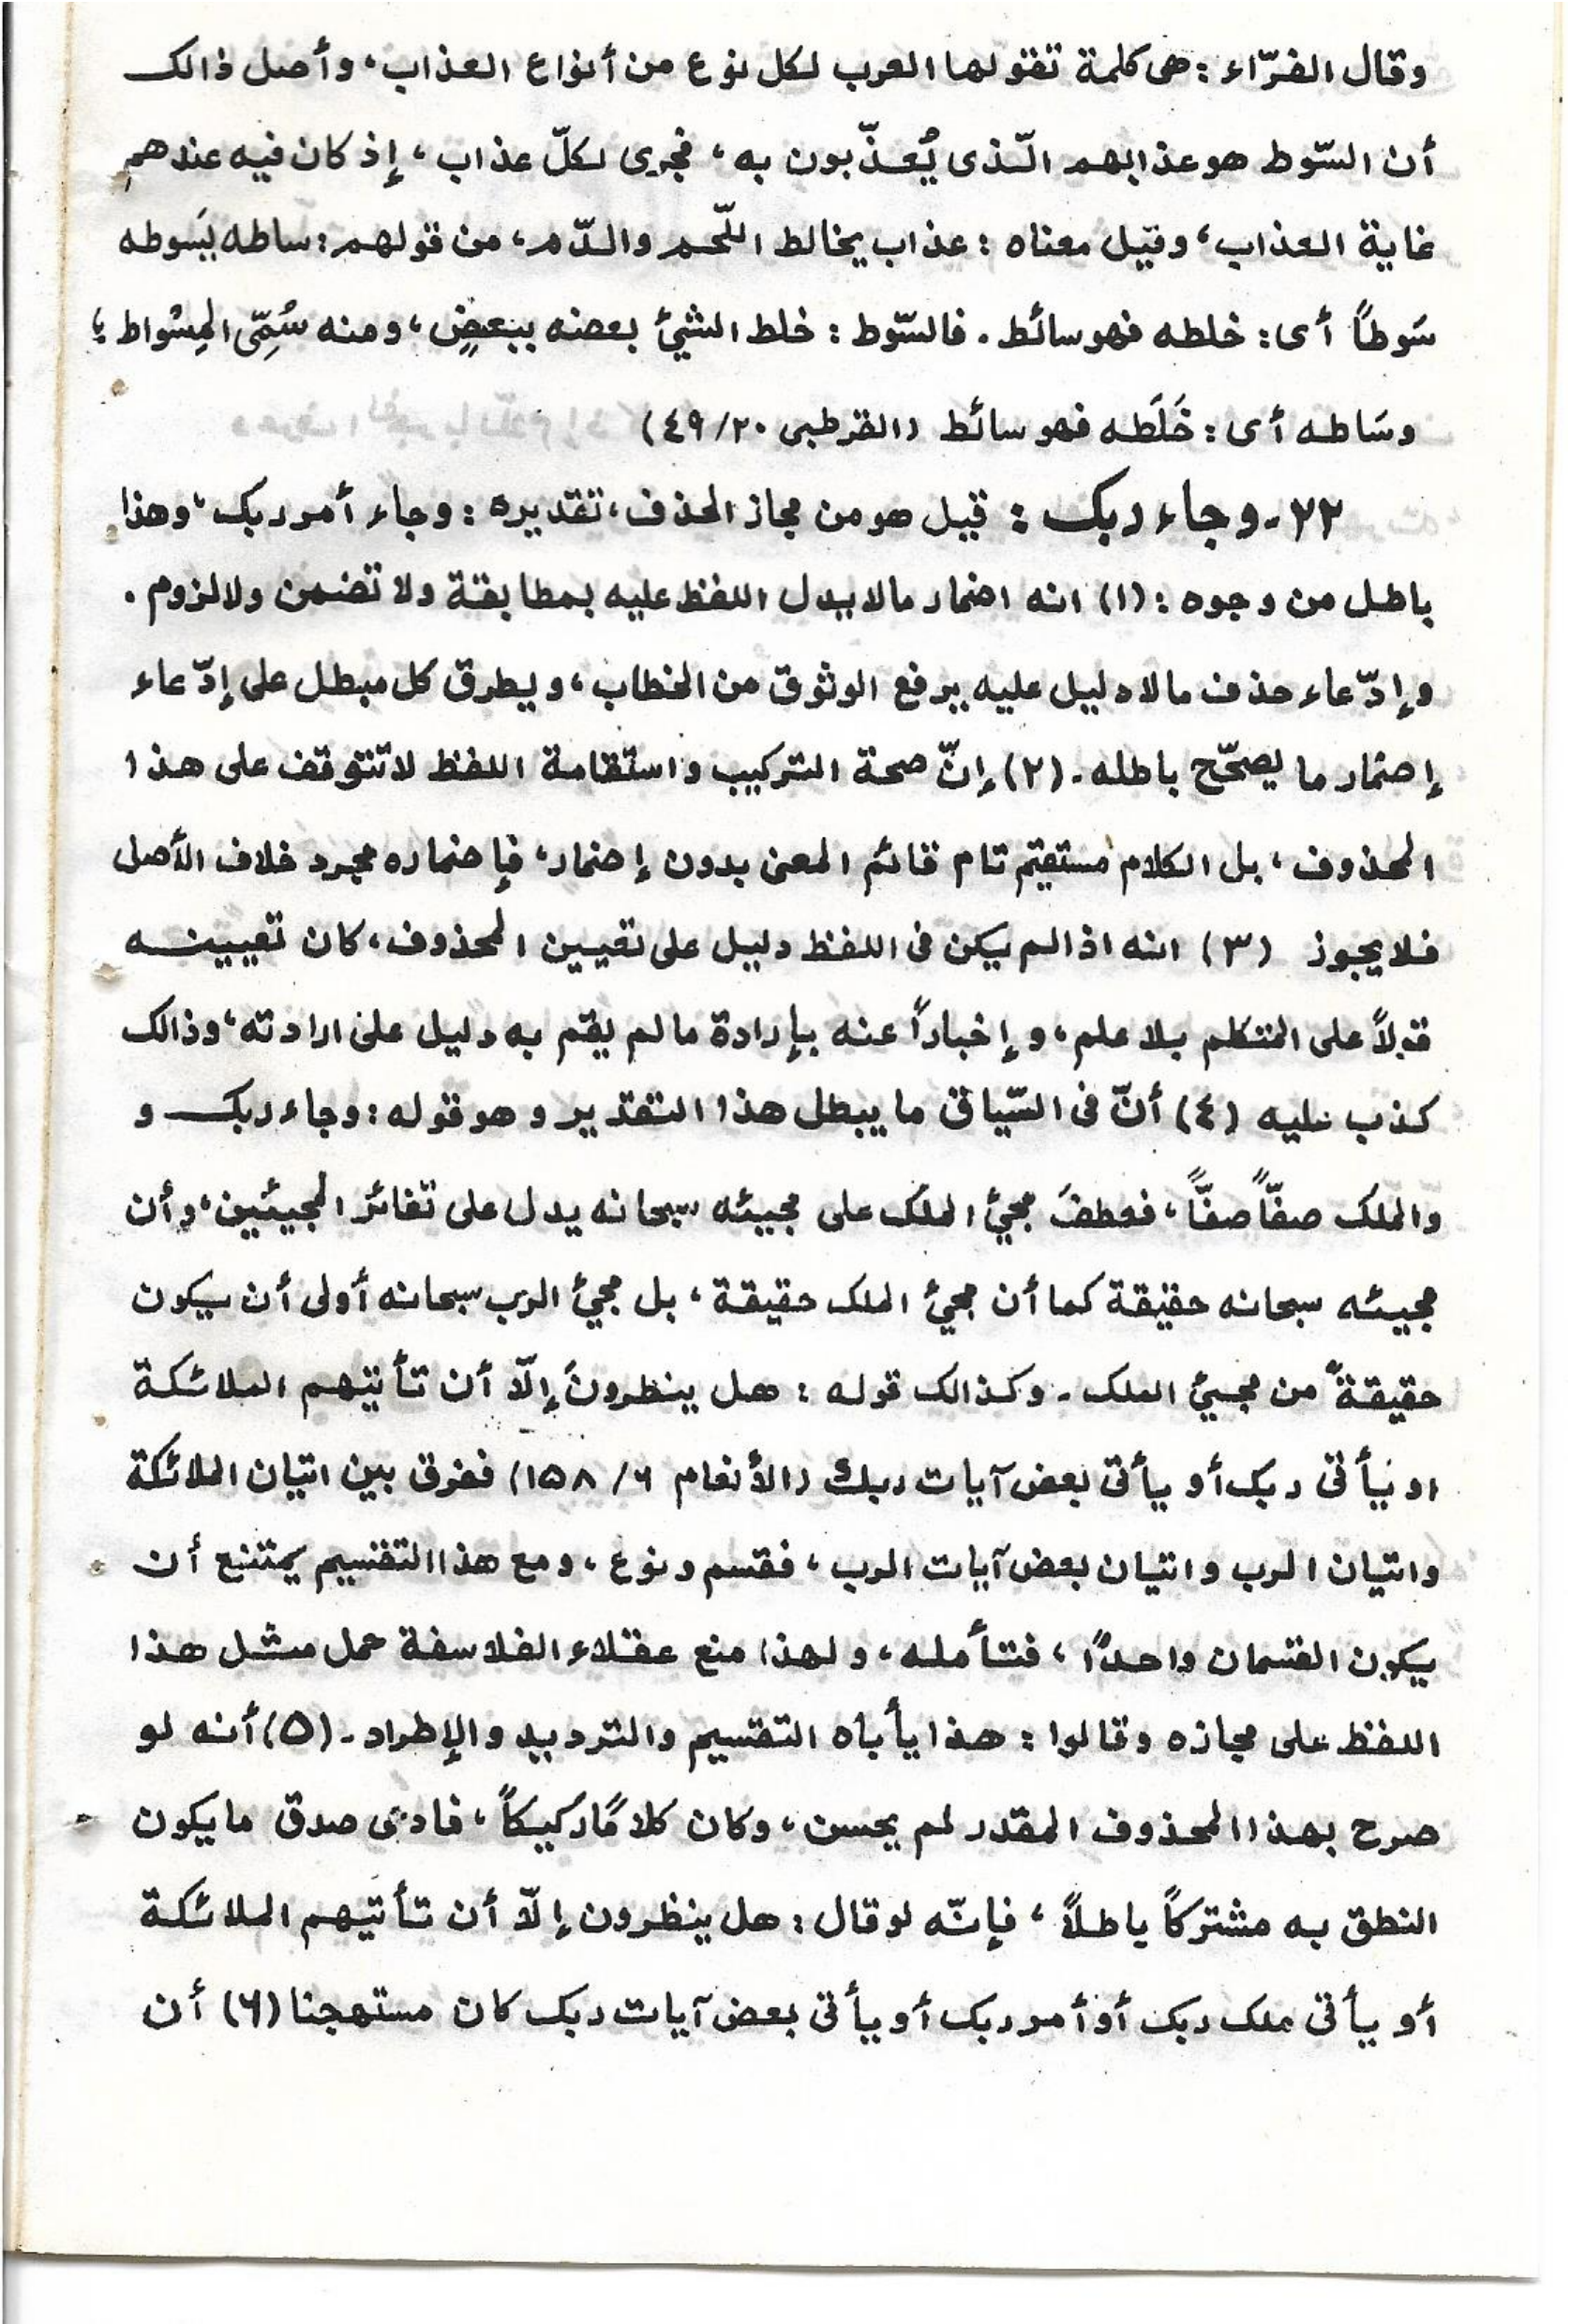 وقال الفرّاء : هى كلمة تقولها العرب لكل نوع من أنواع العذاب، وأصل ذالك
أن السّوط هو عذابهم الّذى يُعذّبون به، فجرى لكلّ عذاب، إذ كان فيه عندهم
غاية العذاب، وقيل معناه : عذاب يخالط اللّحم والدّم، من قولهم : ساطه يَسوطه
سَوطاً أى : خلطه فهو سائط . فالسّوط : خلط الشيئ بعضه ببعضٍ، ومنه سُمّى المِسْواط ؛
وسَاطه أى : خَلَطَه فهو سائط (القرطبى ٢٠/٤٩)
٢٢- وجاء ربك : قيل هو من مجاز الحذف، تقديره : وجاء أمر ربك، وهذا
باطل من وجوه : (١) انه اضمار مالا يدل اللفظ عليه بمطابقة ولا تضمن ولا لزوم .
وإدّعاء حذف مالا دليل عليه يرفع الوثوق من الخطاب، ويطرق كل مبطل على إدّعاء
إضمار ما يصحّح باطله . (٢) إنّ صحة التركيب واستقامة اللفظ لا تتوقف على هذا
المحذوف، بل الكلام مستقيم تام قائم المعنى بدون إضمار، فإضماره مجرد خلاف الأصل
فلا يجوز (٣) انه اذا لم يكن فى اللفظ دليل على تعيين المحذوف، كان تعيينه
قولاً على المتكلم بلا علم، وإخباراً عنه بإرادة ما لم يقم به دليل على ارادته، وذالك
كذب عليه (٤) أنّ فى السّياق ما يبطل هذا التقدير وهو قوله : وجاء ربك و
والملك صفّاً صفّاً، فعطفَ مجيئ الملك على مجيئه سبحانه يدل على تغائر المجيئين، وأن
مجيئه سبحانه حقيقة كما أن مجيئ الملك حقيقة، بل مجيئ الرب سبحانه أولى أن يكون
حقيقةً من مجيئ الملك . وكذالك قوله : هل ينظرون إلّا أن تأتيهم الملائكة
او يأتى ربك أو يأتى بعض آيات ربك (الأنعام ٦/ ١٥٨) ففرق بين اتيان الملائكة
واتيان الرب واتيان بعض آيات الرب، فقسم ونوع، ومع هذا التقسيم يمتنع أن
يكون القسمان واحدًا، فتأمله، ولهذا منع عقلاء الفلاسفة حمل مثل هذا
اللفظ على مجازه وقالوا : هذا يأباه التقسيم والترديد والإطراد . (٥) أنه لو
صرح بهذا المحذوف المقدر لم يحسن، وكان كلامًا ركيكاً، فادى صدق ما يكون
النطق به مشتركاً باطلاً، فإنّه لو قال : هل ينظرون إلّا أن تأتيهم الملائكة
أو يأتى ملك ربك أو أمر ربك أو يأتى بعض آيات ربك كان مستهجنا (٦) أن